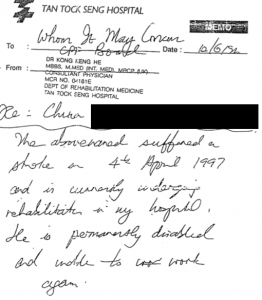 TAN TOCK SENG HOSPITAL
MEMO
To : Whom It May Concern
CPF Board Date :
From : DR KONG KENG HE
MBBS, M.MED (INT. MED), MRCP
CONSULTANT PHYSICIAN
MCR NO. 04181E
DEPT OF REHABILITATION MEDICINE
TAN TOCK SENG HOSPITAL
Re : China
The abovenamed suffered a
stroke on 4th April 1997
and is currently undergoing
rehabilitation in my hospital.
He is permanently disabled
and unable to work
again.